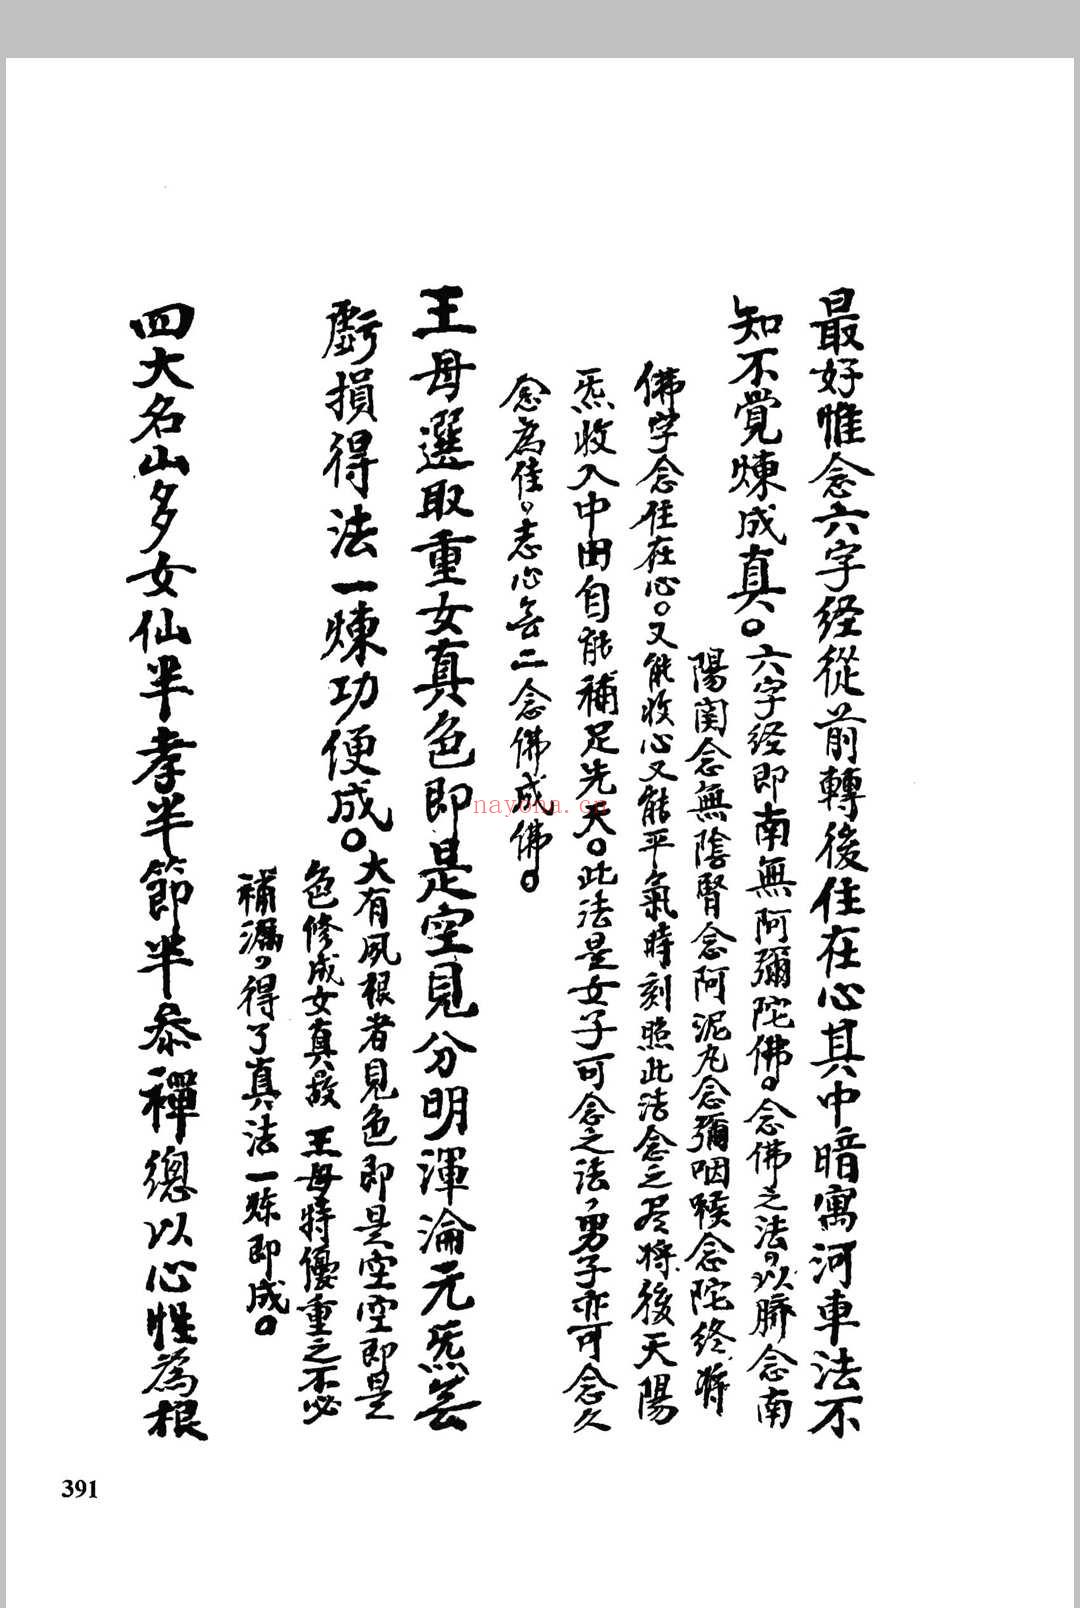 最好惟念六字经從前轉後住在心其中暗寓河車法不
知不覺煉成真。六字经即南無阿彌陀佛。念佛之法，以臍念南
陽関念無陰腎念阿泥丸念彌咽喉念陀终将
佛字念住在心。又能收心又能平氣時刻照此法念之尽将後天陽
炁收入中田自能補足先天。此法是女子可念之法，男子亦可念久
念為佳，志心無二念佛成佛。
王母選取重女真色即是空見分明渾淪元炁無
虧損得法一煉功便成。大有夙根者見色即是空空即是
色修成女真故 王母特優重之不必
補漏，得了真法一炼即成。
四大名山多女仙半孝半節半叅禪總以心性為根
391
nayona.cn